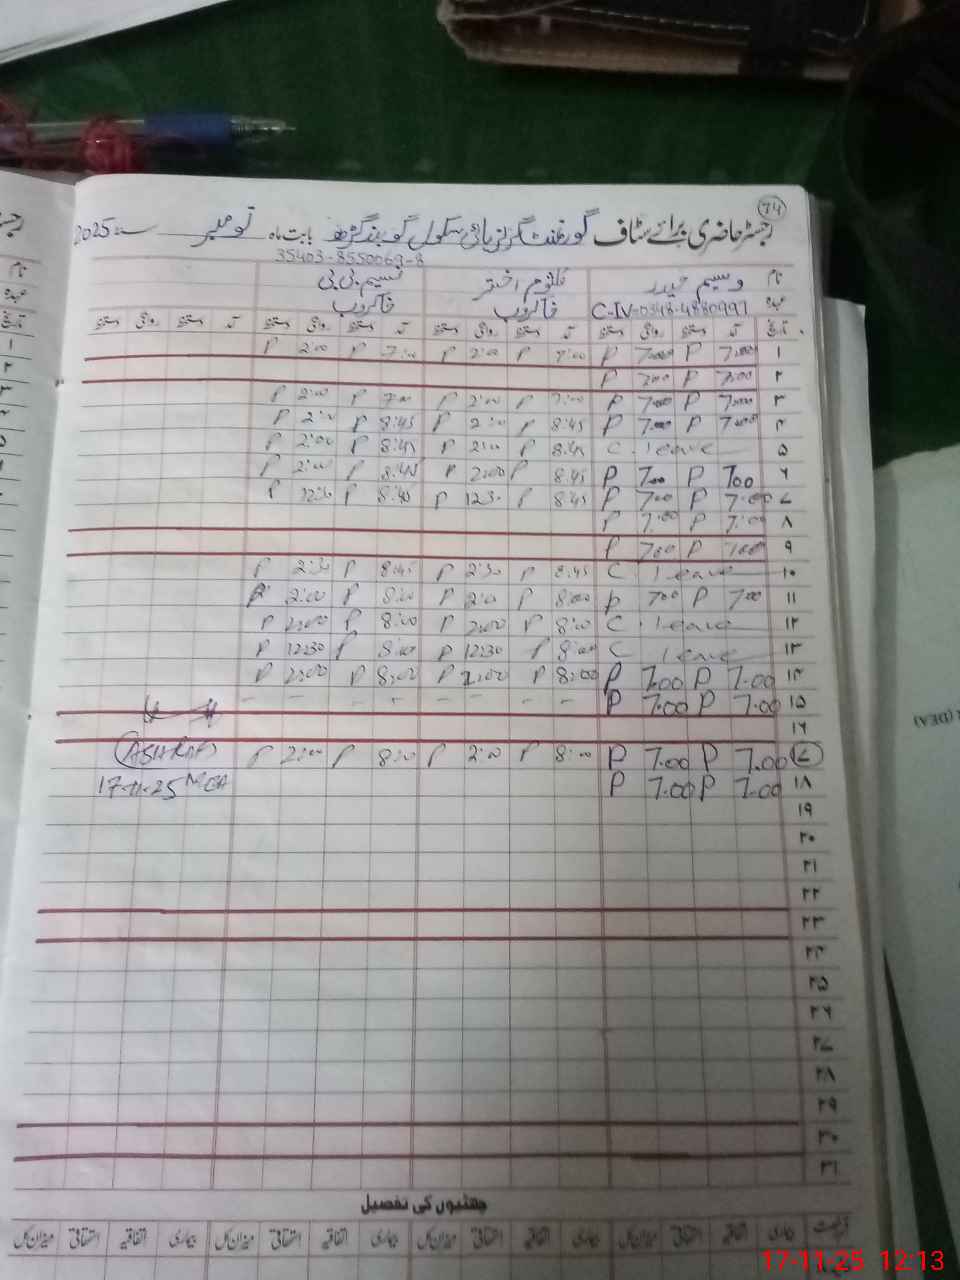 74
رجسٹر حاضری برائے سٹاف گورنمنٹ گرلز ہائی سکول گوبندگڑھ بابت ماہ نومبر سنہ 2025
35403-8550069-8
نام وسیم حیدر کلثوم اختر نسیم بی بی
عہدہ C-IV=0348-4880997 خاکروب خاکروب
تاریخ آمد دستخط روانگی دستخط آمد دستخط روانگی دستخط آمد دستخط روانگی دستخط آمد دستخط روانگی دستخط
۱ 7:00 P 7:00 P 7:00 P 2:00 P 7:00 P 2:00 P
۲ 7:00 P 700 P
۳ 7:00 P 7:00 P 7:00 P 2:00 P 7:00 P 2:00 P
۴ 7:00 P 7:00 P 8:45 P 2:00 P 8:45 P 2:00 P
۵ C. leave 8:45 P 2:00 P 8:45 P 2:00 P
۶ 700 P 700 P 8:45 P 2:00 P 8:45 P 2:00 P
۷ 7:00 P 700 P 8:45 P 12:30 P 8:45 P 12:30 P
۸ 7:00 P 7:00 P
۹ 700 P 700 P
۱۰ C. leave 8:45 P 2:30 P 8:45 P 2:30 P
۱۱ 700 P 700 P 8:00 P 2:00 P 8:00 P 2:00 P
۱۲ C. leave 8:00 P 2:00 P 8:00 P 2:00 P
۱۳ C leave 8:00 P 12:30 P 8:00 P 12:30 P
۱۴ 7.00 P 7.00 P 8:00 P 2:00 P 8:00 P 2:00 P
۱۵ 7.00 P 7.00 P - - - - - - - -
۱۶
۱۷ 7.00 P 7.00 P 8:00 P 2:00 P 8:00 P 2:00 P (ASHRAF)
۱۸ 7.00 P 7.00 P 17-11-25 MEA
۱۹
۲۰
۲۱
۲۲
۲۳
۲۴
۲۵
۲۶
۲۷
۲۸
۲۹
۳۰
۳۱
چھٹیوں کی تفصیل
بیماری اتفاقیہ استحقاقی میزان کل بیماری اتفاقیہ استحقاقی میزان کل بیماری اتفاقیہ استحقاقی میزان کل بیماری اتفاقیہ استحقاقی میزان کل
(DEA)
17-11-25 12:13